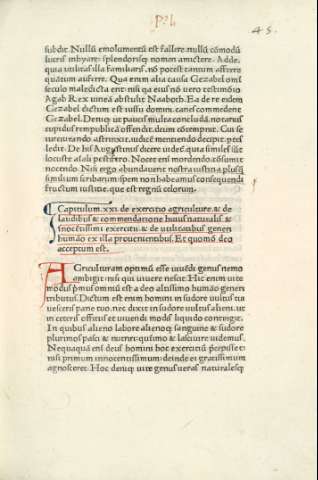 P. h
45.
subdit. Nullū emolumentū est fallere. nullū cōmodū
lucris inhyare: splendorisq; nomen amictere. Adde.
quia utilitas illa familiaris. nō potest tantum afferre
quātum auferre. Qua enim alia causa Gezabel omī
seculo maledicta erit: nisi qa eius nō uero testimōio
Agab Rex uineā abstulit Naaboth. Ea de re eidem
Gezabel. Deniq; ut paucis multa concludā. notarius
cupidus rempublicā offendit. deum cōtempnit. Cui se
iureiurando astrinxit. iudicē mentiendo decipit. ptēs
ledit. De his Augustinus dicere uidet. quia similes sūt
nocendo. Nisi ergo abundauerit nostra iustitia plusq̄
similium scribarum: spem non habeamus consequendi
fructum iustitie. que est regnū celorum.
Capitulum. xxi. de exercitio agriculture. & de
laudibus & commendatione huius naturalis &
īnocētissimi exercitii. & de utilitatibus generi
humāo ex illa prouenientibus. Et quomō deo
acceptum est.
Agriculturam optimū esse uiuēdi genus nemo
ambigit. nisi qui uiuere nescit. Hic enim uite
modus p̄mus omniū est a deo altissimo humāo generi
tributus. Dictum est enim homini in sudore uultus tui
uesceris pane tuo. nec dixit in sudore uultus alieni. ut
in ceteris efficitis et uiuendi modis liquido contingit.
In quibus alieno labore alienoq; sanguine & sudore
plurimos pasci & nutriri quīimo & lasciuire uidemus.
Nequaquā enī deus homini hoc exercitiū p̄cepisset: ni
nisi primum innocentissimum: deinde et gratissimum
agnosceret. Hoc deniq; uite genus ueras naturalesq;